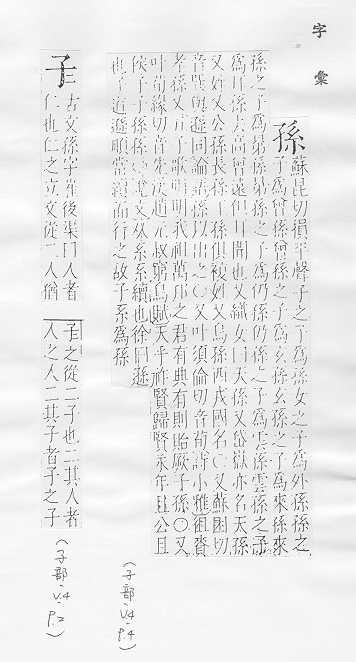 字彙
孫
蘇昆切損平聲子之子為孫女之子為外孫孫之
子為曾孫曾孫之子為玄孫玄孫之子為來孫來
孫之子為昆孫昆孫之子為仍孫仍孫之子為雲孫雲孫之子
為耳孫去高曾遠但耳聞也又織女曰天孫又岱嶽亦名天孫
又姓又公孫長孫王孫俱複姓又烏孫西戎國名〇又蘇困切
音巽與遜同論語孫以出之〇又叶須倫切音荀詩小雅徂賚
孝孫又
歌明明我祖萬邦之君有典有則貽厥子孫〇又
叶荀緣切音先
叔窮鳥賦天乎祚賢歸賢永年且公且
侯子子孫孫
文从系系續也徐曰孫
也子
遜順當
而行之故子系為孫
子
古文孫字
後渠
人者
仁也仁之立文從二人猶
子之從二子也二其人者
人之人二其子者子之子
(子部·V.4·P.4)
(子部·V.4·P.2)